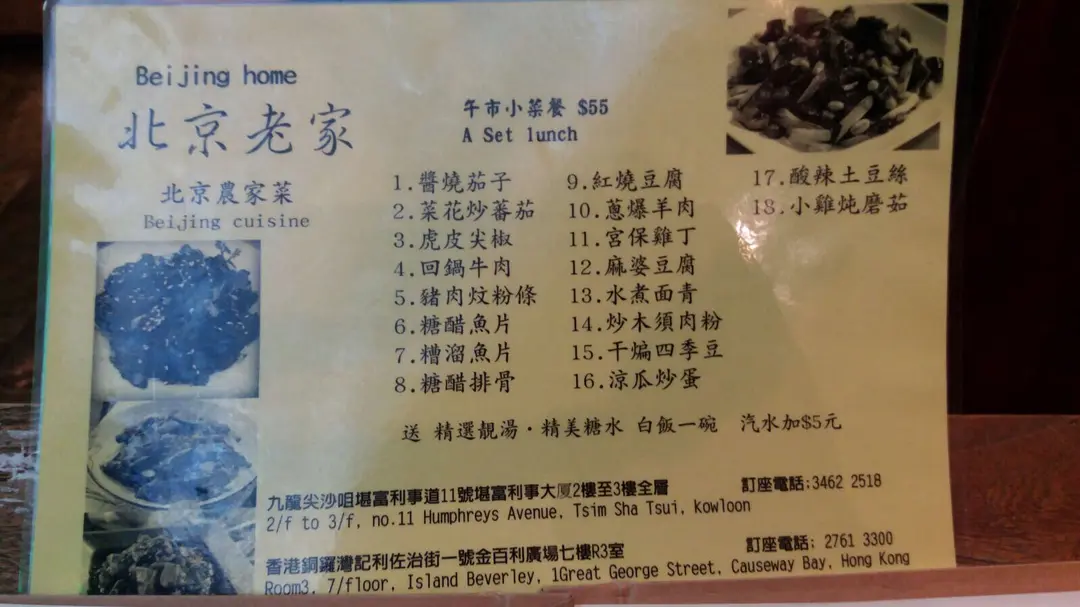 Beijing home
北京老家
北京農家菜
Beijing cuisine
午市小菜餐 $55
A Set lunch
1.醬燒茄子
2.菜花炒蕃茄
3.虎皮尖椒
4.回鍋牛肉
5.豬肉炆粉條
6.糖醋魚片
7.糟溜魚片
8.糖醋排骨
9.紅燒豆腐
10.蔥爆羊肉
11.宮保雞丁
12.麻婆豆腐
13.水煮面青
14.炒木須肉粉
15.干煸四季豆
16.涼瓜炒蛋
17.酸辣土豆絲
18.小雞炖磨茹
送 精選靚湯·精美糖水 白飯一碗 汽水加$5元
九龍尖沙咀堪富利事道11號堪富利事大厦2樓至3樓全層 訂座電話:3462 2518
2/f to 3/f, no.11 Humphreys Avenue, Tsim Sha Tsui, Kowloon
香港銅鑼灣記利佐治街一號金百利廣場七樓R3室 訂座電話: 2761 3300
Room3, 7/floor, Island Beverley, 1Great George Street, Causeway Bay, Hong Kong